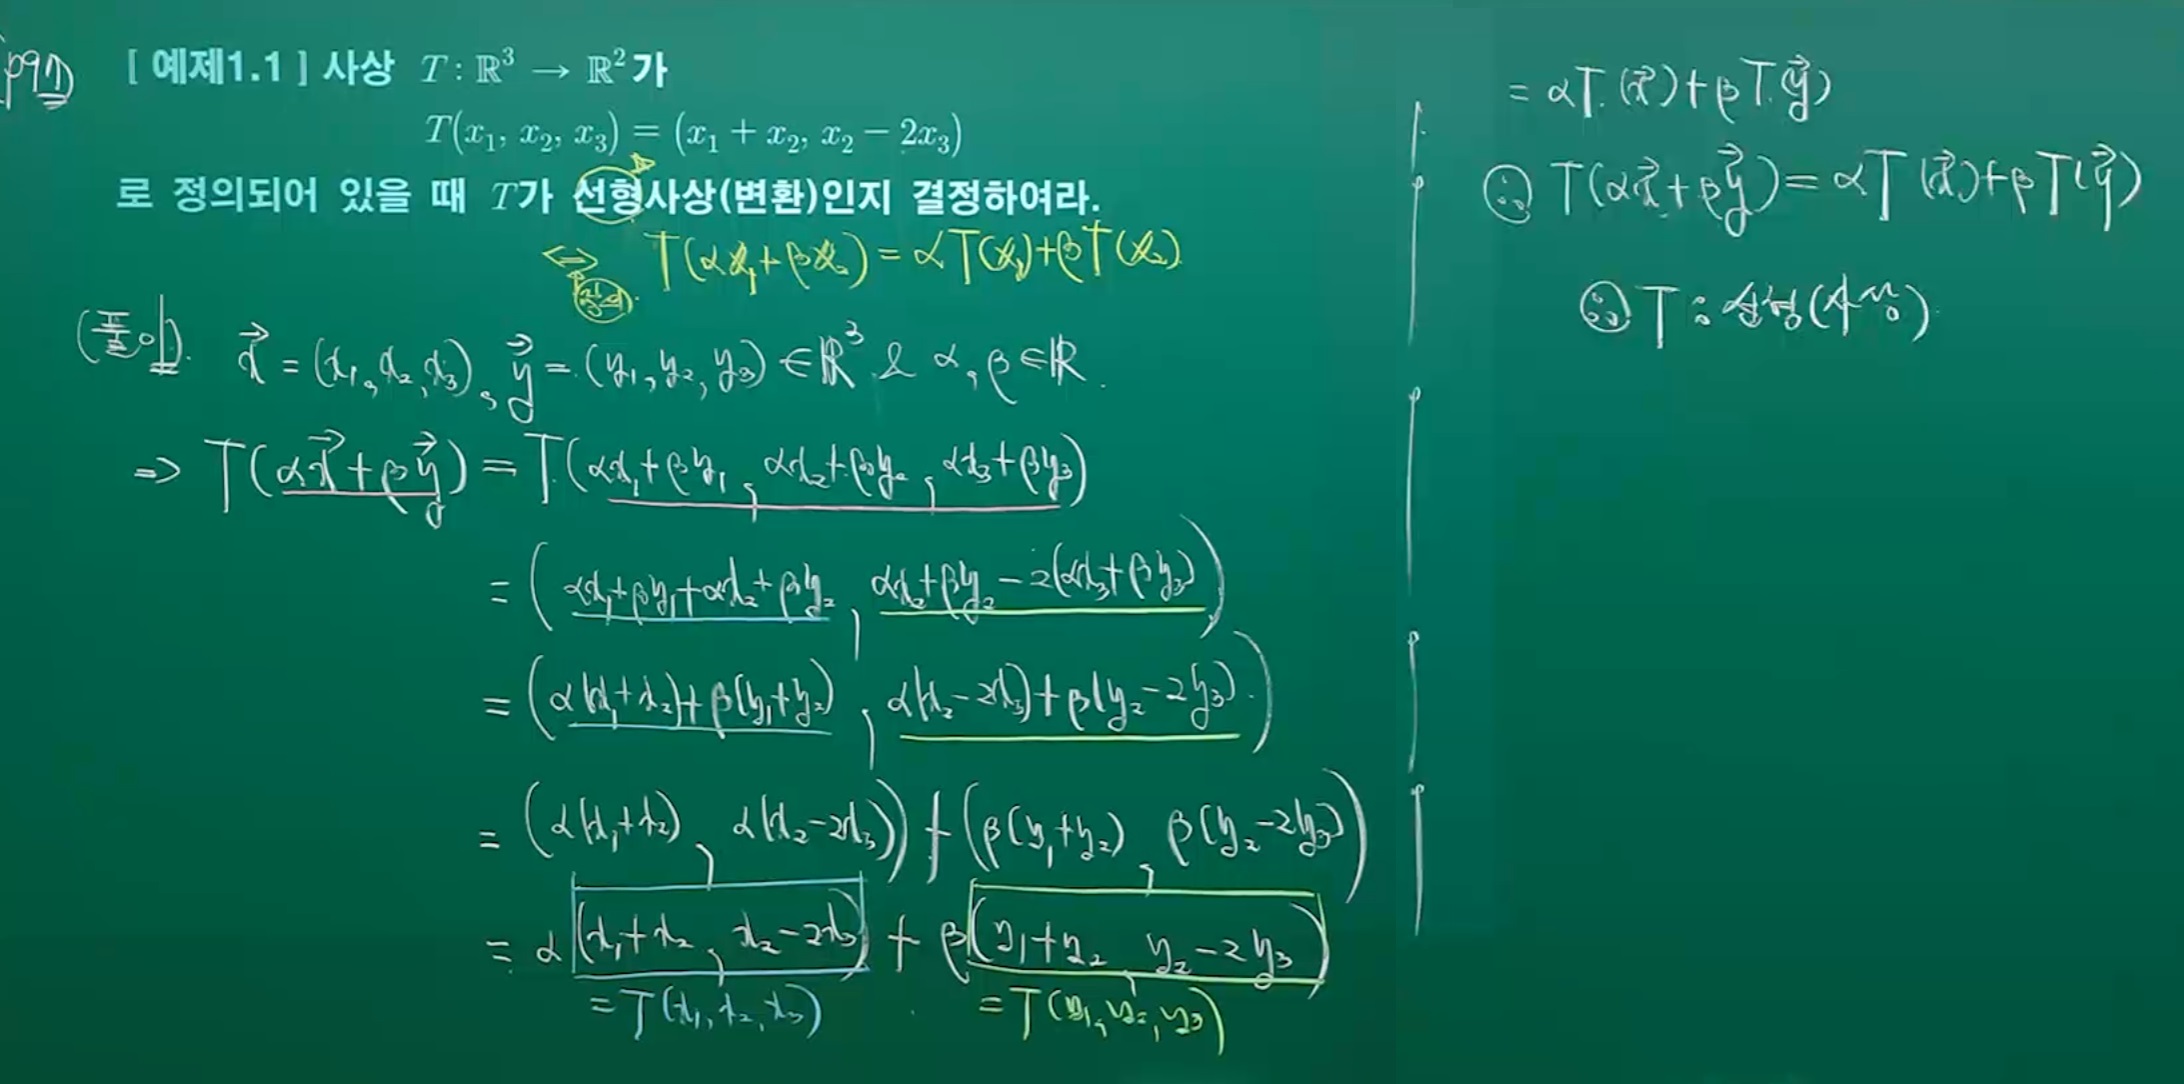 p97)
[ 예제1.1 ] 사상 T : ℝ³ → ℝ²가
T(x₁, x₂, x₃) = (x₁ + x₂, x₂ − 2x₃)
로 정의되어 있을 때 T가 선형사상(변환)인지 결정하여라.
⇔ T(αx₁+βx₂) = αT(x₁)+βT(x₂)
(풀이). x⃗ = (x₁, x₂, x₃), y⃗ = (y₁, y₂, y₃) ∈ ℝ³ & α, β ∈ ℝ.
⇒ T(αx⃗+βy⃗) = T(αx₁+βy₁, αx₂+βy₂, αx₃+βy₃)
= (αx₁+βy₁+αx₂+βy₂, αx₂+βy₂−2(αx₃+βy₃))
= (α(x₁+x₂)+β(y₁+y₂), α(x₂−2x₃)+β(y₂−2y₃))
= (α(x₁+x₂), α(x₂−2x₃)) + (β(y₁+y₂), β(y₂−2y₃))
= α(x₁+x₂, x₂−2x₃) + β(y₁+y₂, y₂−2y₃)
= T(x₁, x₂, x₃) = T(y₁, y₂, y₃)
= αT(x⃗)+βT(y⃗)
∴ T(αx⃗+βy⃗) = αT(x⃗)+βT(y⃗)
∴ T : 선형(사상).